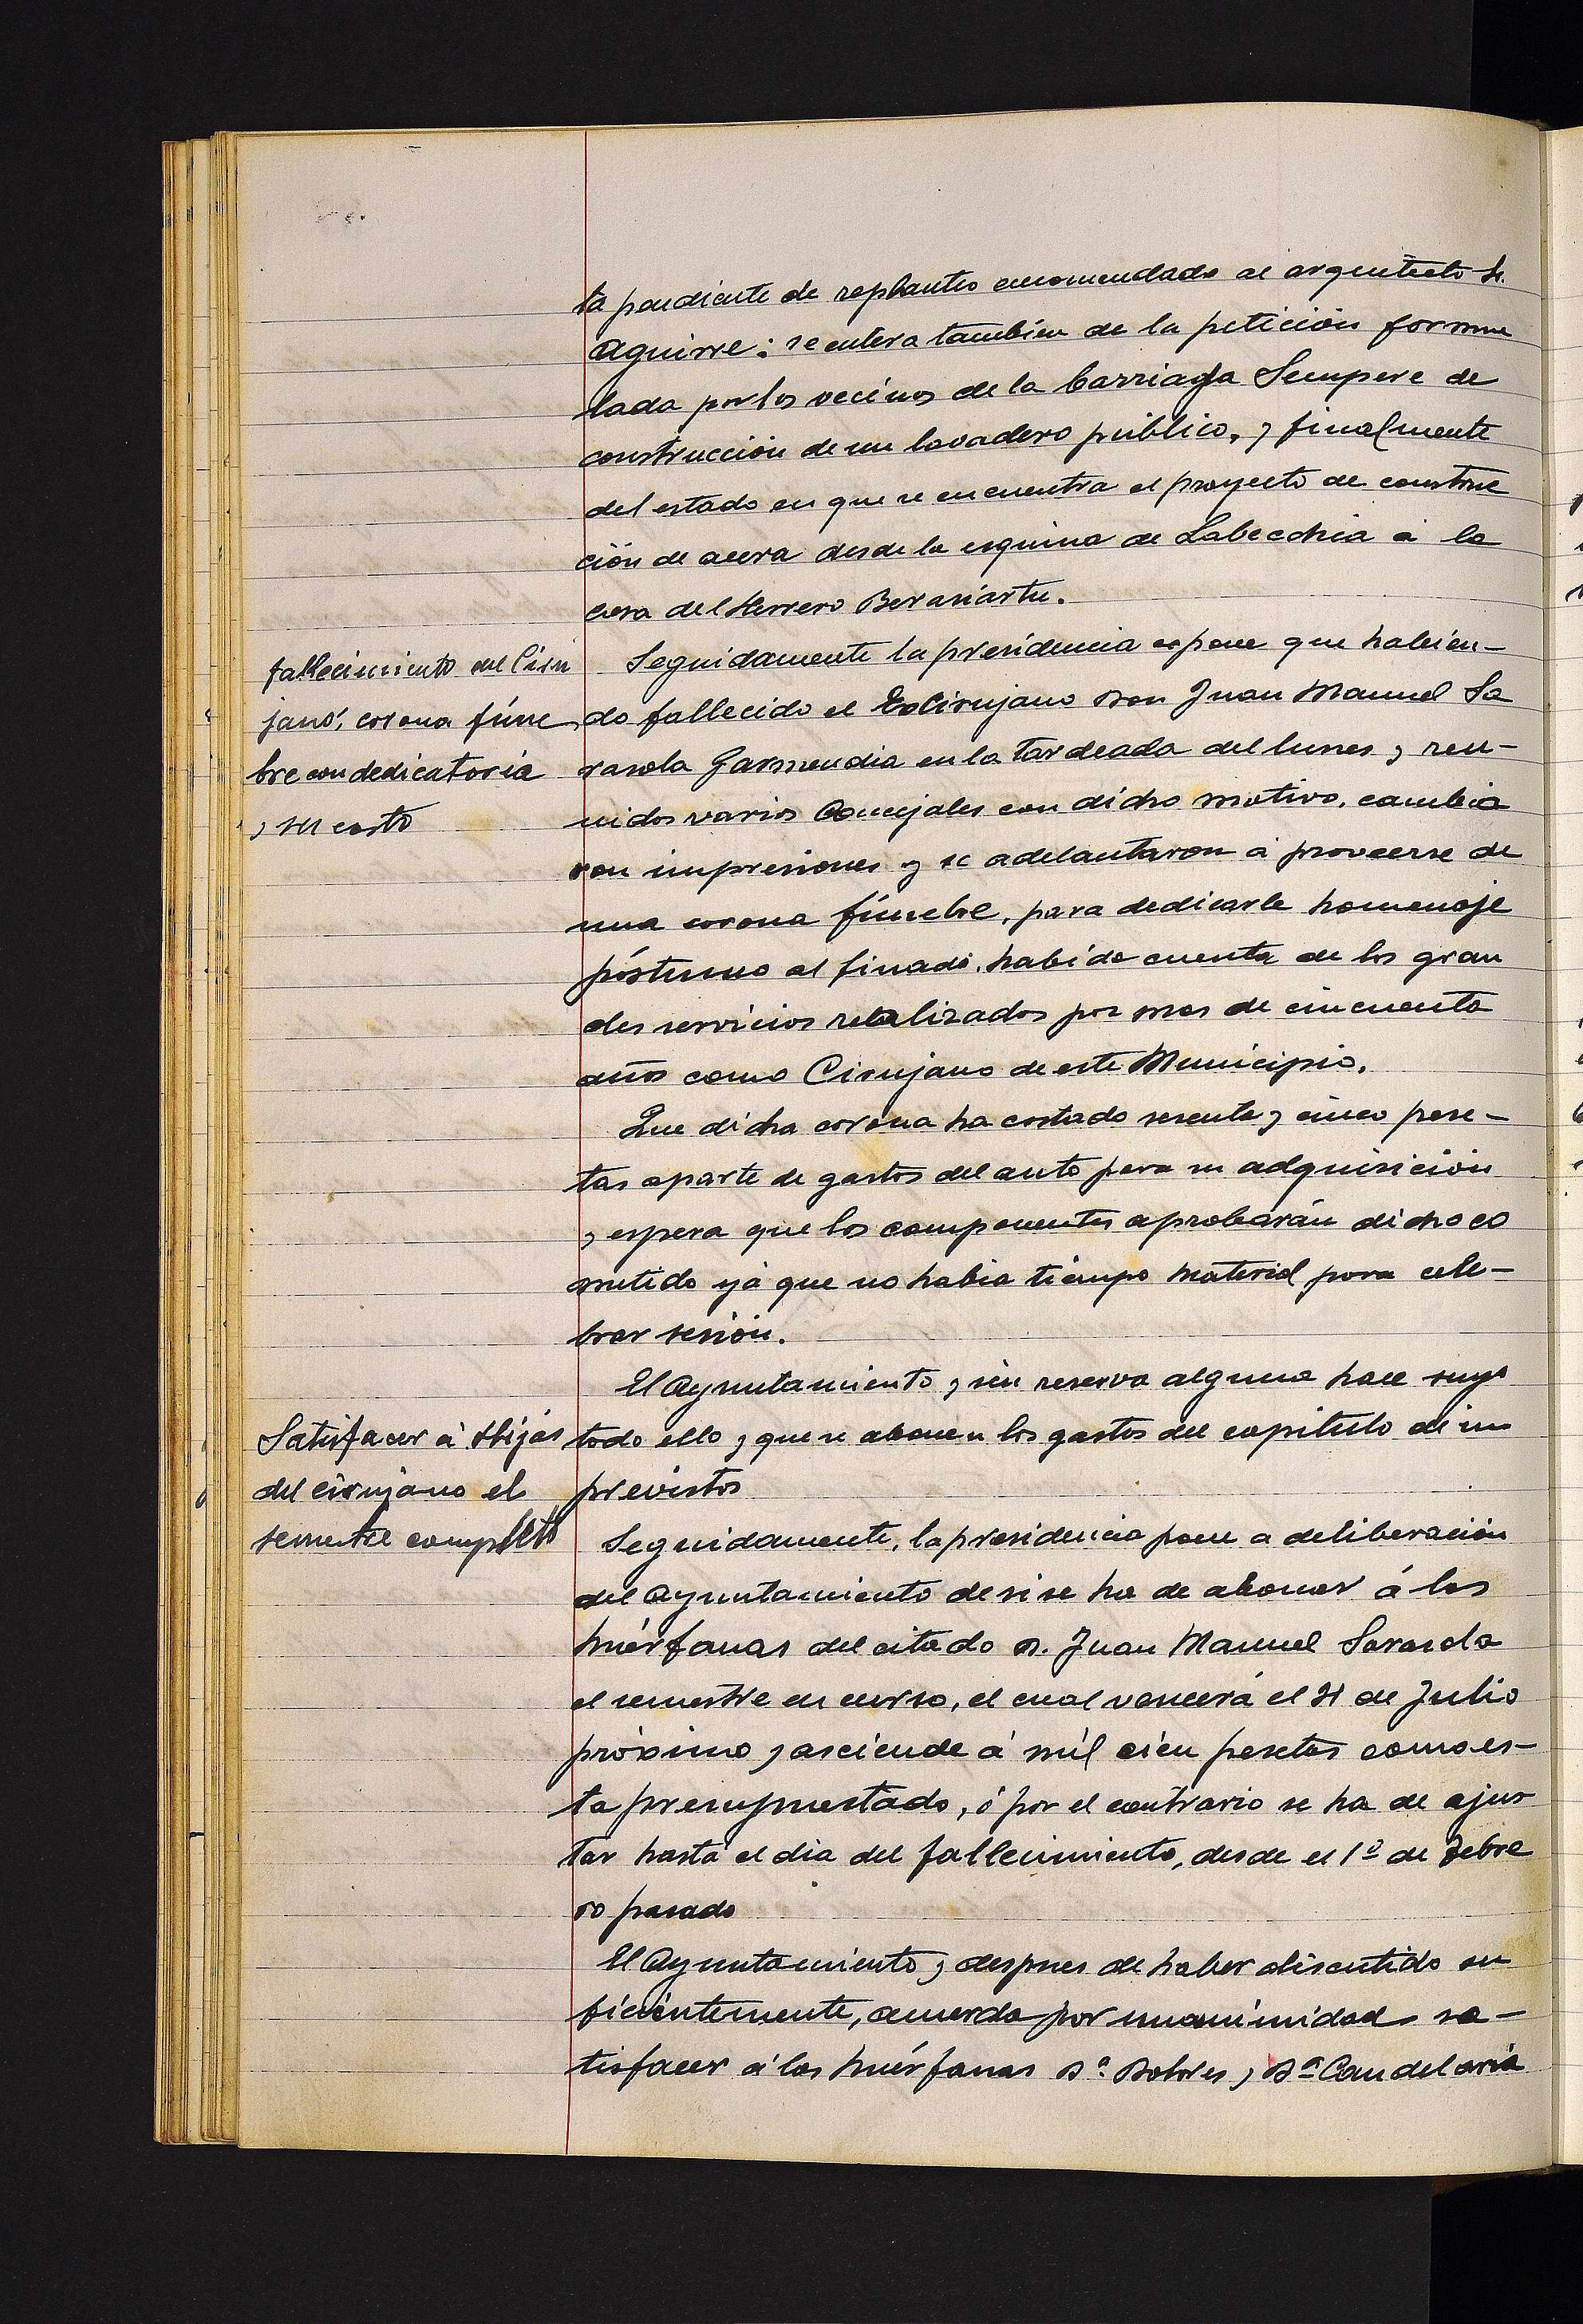 ta pendiente de replanteo encomendado al arquitecto Sr.
Aguirre: se entera tambien de la petición formu
lada por los vecinos de la barriada Sempere de
construcción de un lavadero público, y finalmente
del estado en que se encuentra el proyecto de construc
ción de acera desde la esquina de Labecchia á la
casa del Herrero Berasiartu.
fallecimiento del Ciru
jano, corona fúne
bre con dedicatoria
y su costo
Seguidamente la presidencia expone que habien-
do fallecido el Excirujano Don Juan Manuel Sa
rasola Garmendia en la tardeada del lunes y reu-
nidos varios Concejales con dicho motivo, cambia
ron impresiones y se adelantaron á proveerse de
una corona fúnebre, para dedicarle homenaje
póstumo al finado, habida cuenta de los gran
des servicios realizados por mas de cincuenta
años como Cirujano de este Municipio.
Que dicha corona ha costado sesenta y cinco pese-
tas aparte de gastos del auto para su adquisición
y espera que los componentes aprobarán dicho co
metido yá que no habia tiempo material para cele-
brar sesión.
El Ayuntamiento y sin reserva alguna hace suyo
todo ello y que se abonen los gastos del capitulo de im
previstos
Satisfacer á Hijas
del cirujano el
semestre completo
Seguidamente, la presidencia pone a deliberación
del Ayuntamiento de si se ha de abonar á las
huérfanas del citado D. Juan Manuel Sarasola
el semestre en curso, el cual vencerá el 31 de Julio
próximo y asciende á mil cien pesetas como es-
ta presupuestado, ó por el contrario se ha de ajus
tar hasta el dia del fallecimiento, desde el 1º de Febre
ro pasado
El Ayuntamiento y despues de haber discutido su
ficientemente, acuerda por unanimidad sa-
tisfacer á las huérfanas Dª Dolores y Dª Candelaria